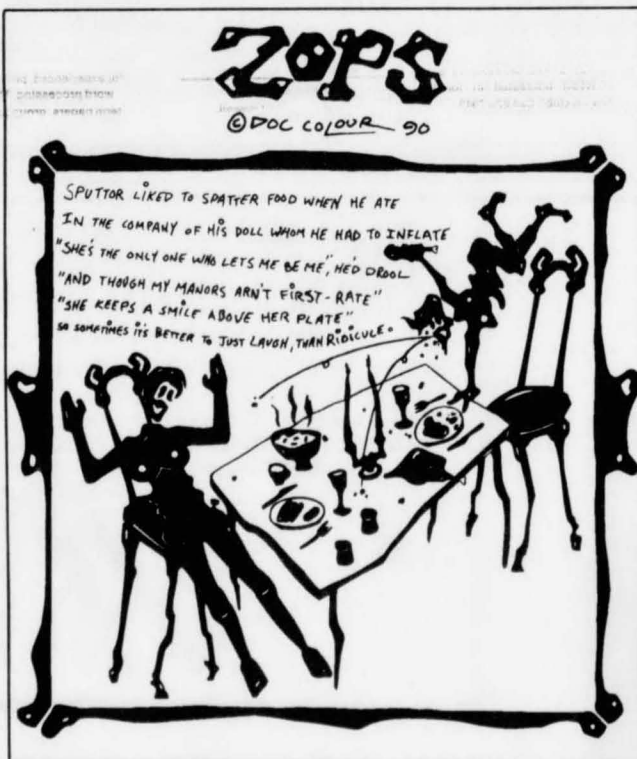 ZOPS
© DOC COLOUR 90
SPUTTOR LIKED TO SPATTER FOOD WHEN HE ATE
IN THE COMPANY OF HIS DOLL WHOM HE HAD TO INFLATE
"SHE'S THE ONLY ONE WHO LETS ME BE ME", HE'D DROOL
"AND THOUGH MY MANORS ARN'T FIRST-RATE"
"SHE KEEPS A SMILE ABOVE HER PLATE"
SO SOMETIMES IT'S BETTER TO JUST LAUGH, THAN RIDICULE.